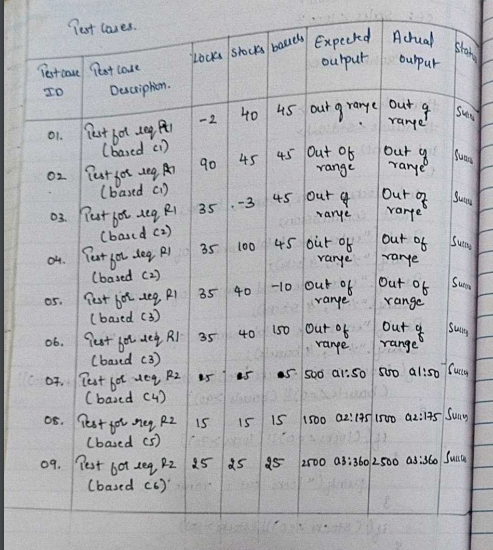 Test Cases.
Test case ID Test Case Description. Locks Stocks barrels Expected output Actual output Status
01. Test for req R1 (based C1) -2 40 45 Out of range Out of range Success
02. Test for req R1 (based C1) 90 45 45 Out of range Out of range Success
03. Test for req R1 (based C2) 35 -3 45 Out of range Out of range Success
04. Test for req R1 (based C2) 35 100 45 Out of range Out of range Success
05. Test for req R1 (based C3) 35 40 -10 Out of range Out of range Success
06. Test for req R1 (based C3) 35 40 150 Out of range Out of range Success
07. Test for req R2 (based C4) 5 5 5 500 a1:50 500 a1:50 Success
08. Test for req R2 (based C5) 15 15 15 1500 a2:175 1500 a2:175 Success
09. Test for req R2 (based C6) 25 25 25 2500 a3:360 2500 a3:360 Success